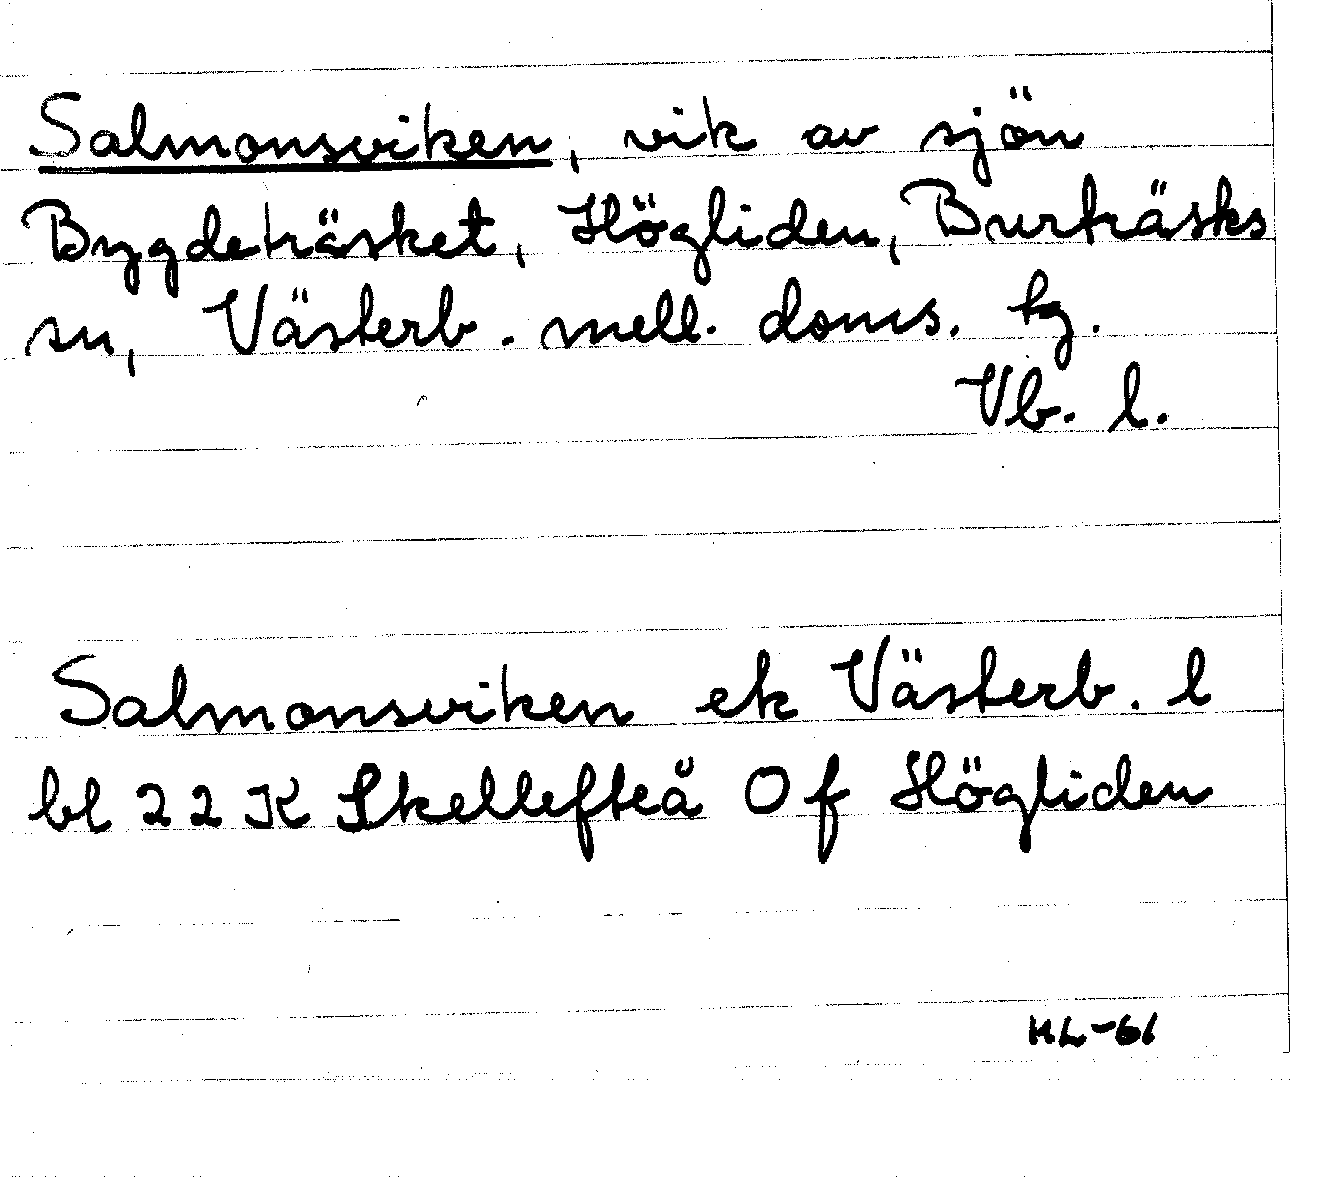 Salmonsviken, vik av sjön
Bygdeträsket, Högliden, Burträsks
sn, Västerb. mell. doms. tg.
Vb. l.
Salmonsviken ek Västerb. l
bl 22 K Skellefteå Of Högliden
HL-61